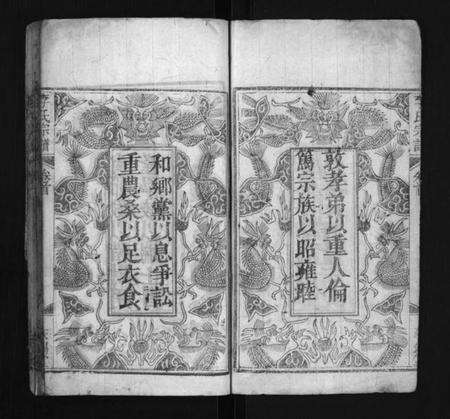 敦孝弟以重人倫
篤宗族以昭雍睦
和鄉黨以息爭訟
重農桑以足衣食
氏宗譜